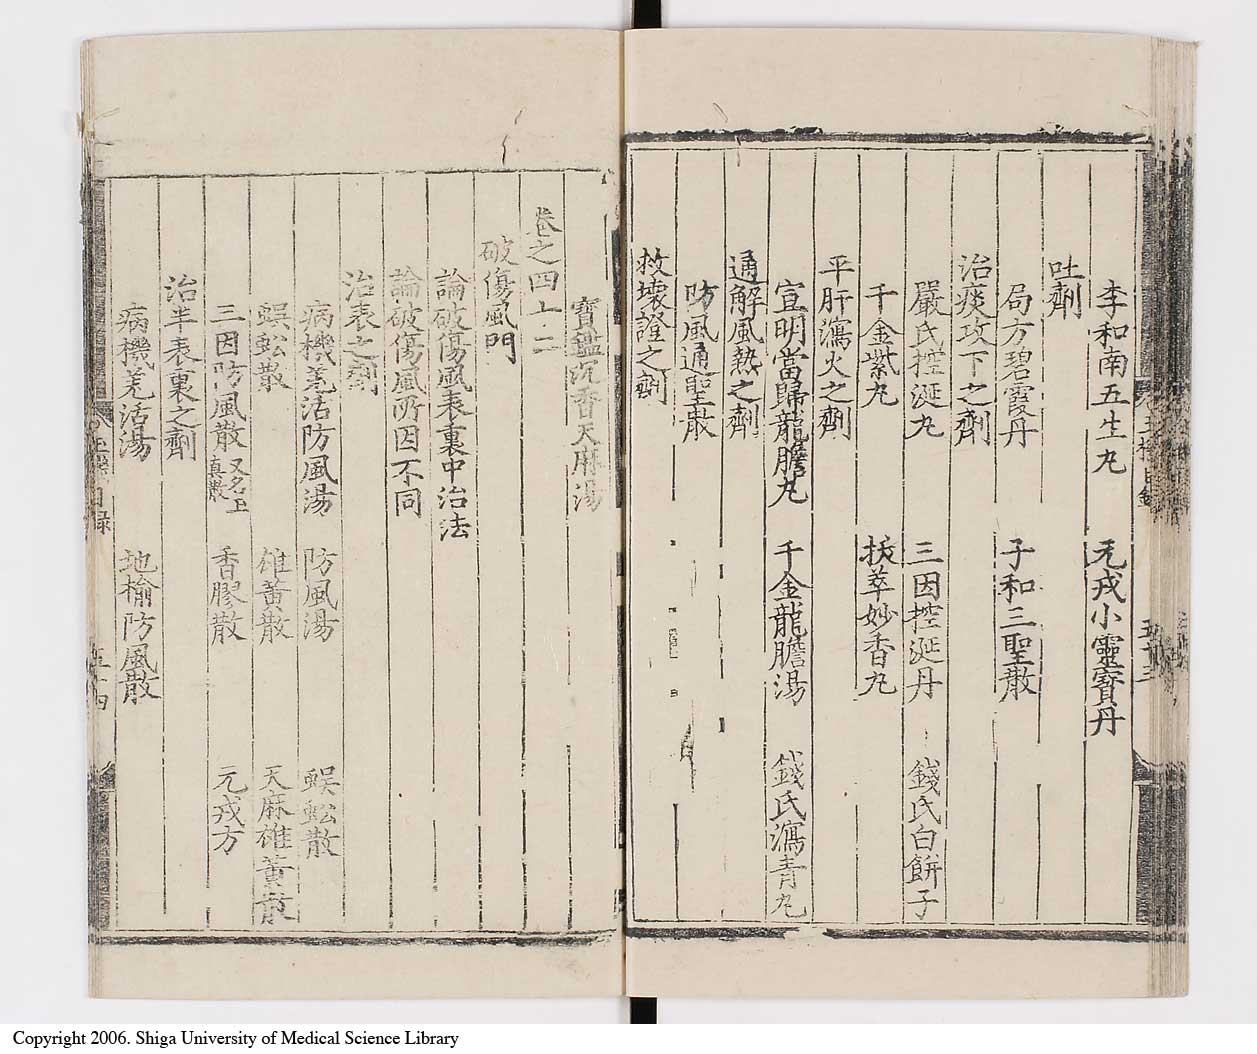 李和南五生丸 元戎小靈寶丹
吐劑
局方碧霞丹 子和三聖散
治痰攻下之劑
嚴氏控涎丸 三因控涎丹 錢氏白餅子
千金紫丸 拔萃妙香丸
平肝瀉火之劑
宣明當歸龍膽丸 千金龍膽湯 錢氏瀉青丸
通解風熱之劑
防風通聖散
救壞證之劑
寶鑑沉香天麻湯
卷之四上二
破傷風門
論破傷風表裏中治法
論破傷風所因不同
治表之劑
病機羗活防風湯 防風湯 蜈蚣散
蜈蚣散 雄黃散 天麻雄黃散
三因防風散 又名玉真散 香膠散 元戎方
治半表裏之劑
病機羗活湯 地榆防風散
目録
Copyright 2006. Shiga University of Medical Science Library